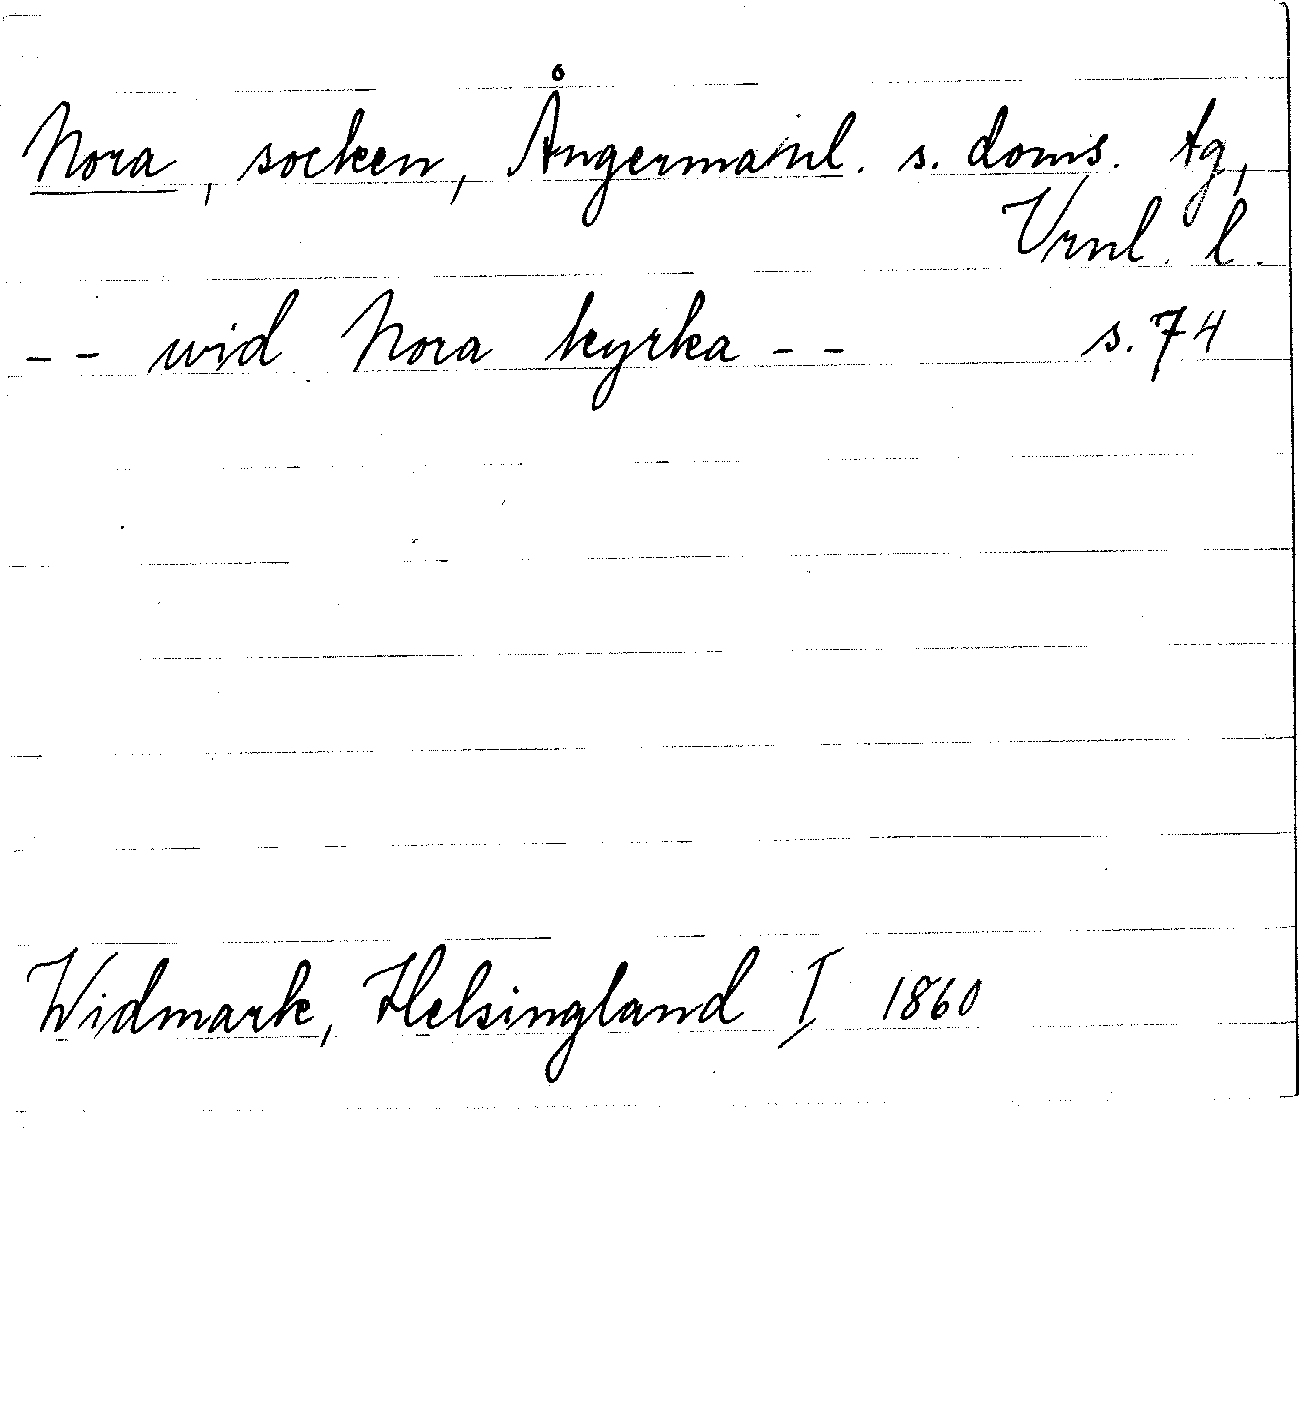 Nora, socken, Ångermanl. s. doms. tg,
Vrnl. l.
-- wid Nora kyrka -- s. 74
Widmark, Helsingland I 1860